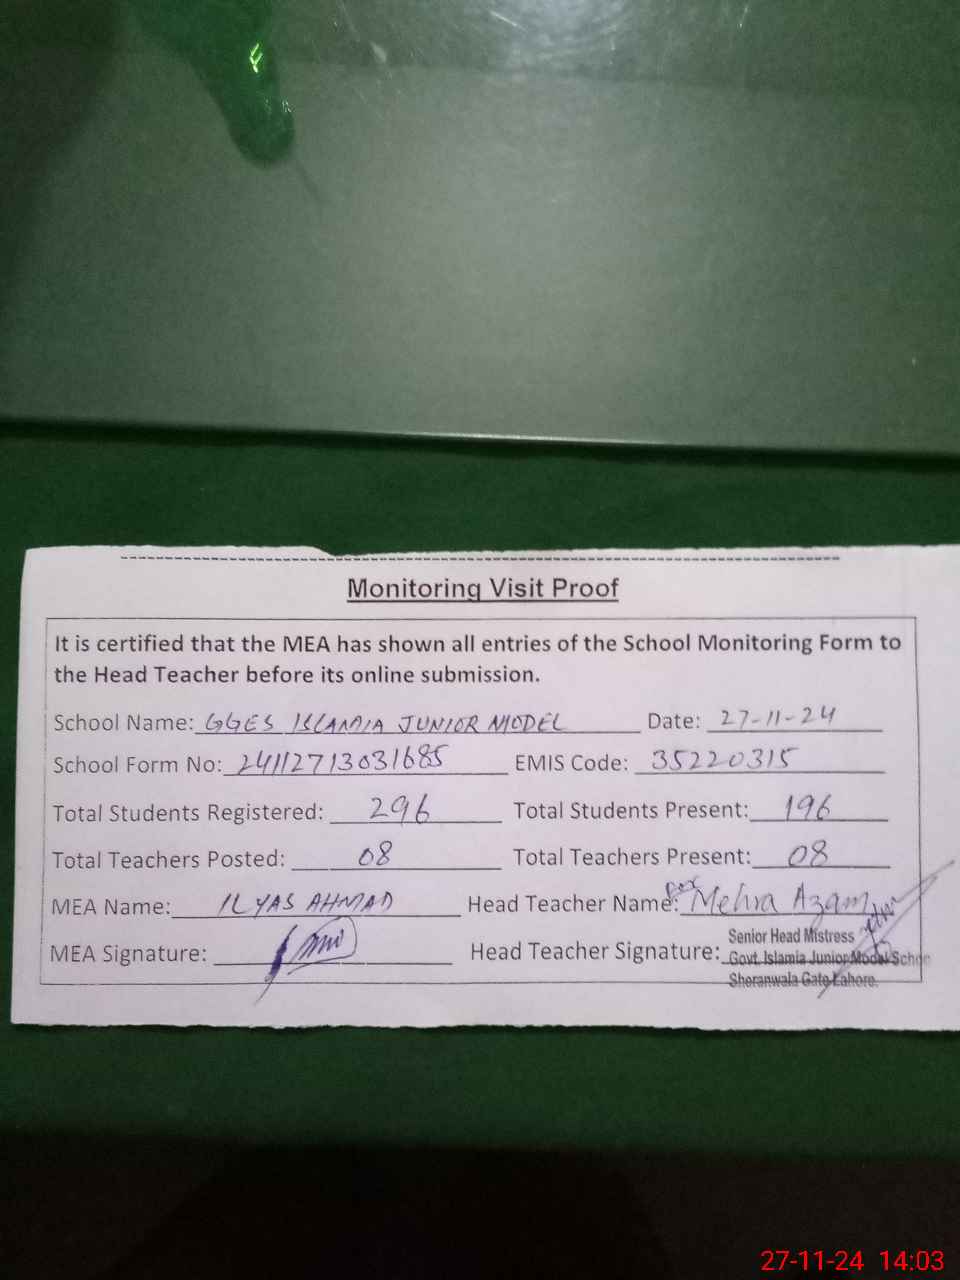 Monitoring Visit Proof
It is certified that the MEA has shown all entries of the School Monitoring Form to
the Head Teacher before its online submission.
School Name: GGES ISLAMIA JUNIOR MODEL Date: 27-11-24
School Form No: 24112713031685 EMIS Code: 35220315
Total Students Registered: 296 Total Students Present: 196
Total Teachers Posted: 08 Total Teachers Present: 08
MEA Name: ILYAS AHMAD Head Teacher Name: for Mehra Azam
MEA Signature: Head Teacher Signature:
Senior Head Mistress
Govt. Islamia Junior Model School
Sheranwala Gate Lahore.
27-11-24 14:03